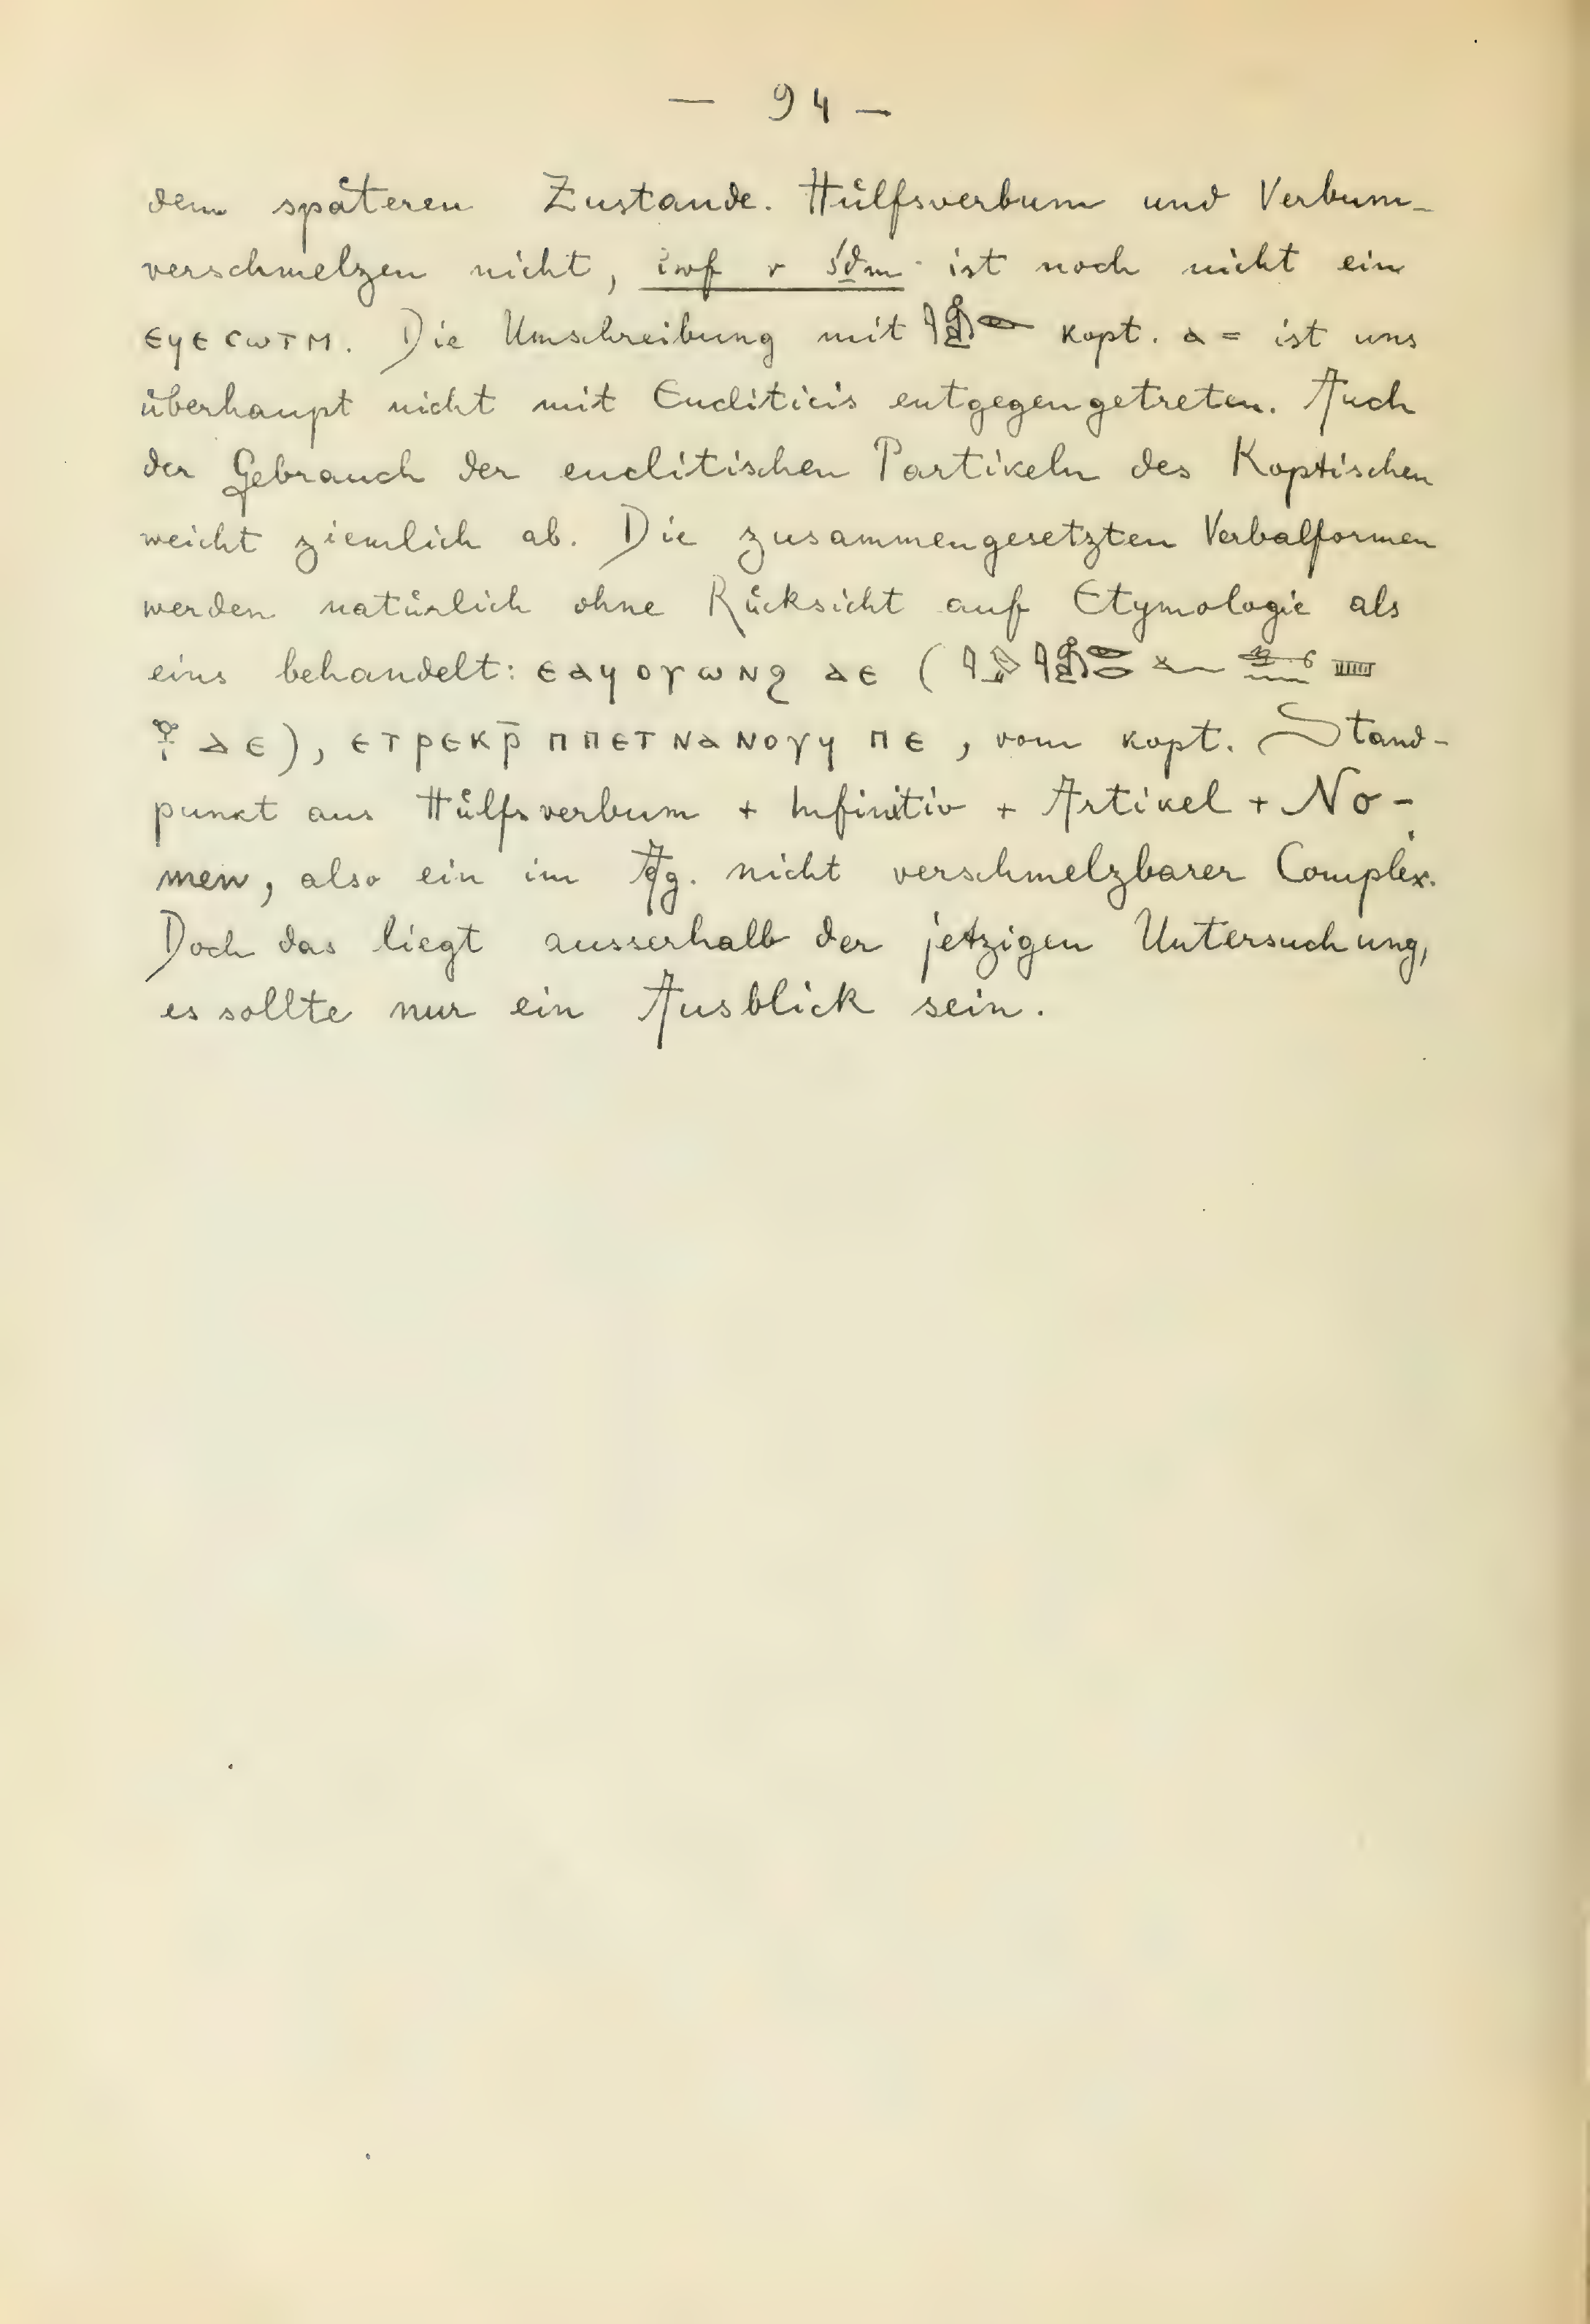 — 94 —
dem späteren Zustande. Hülfsverbum und Verbum
verschmelzen nicht, iwf r śḏm ist noch nicht ein
ⲉϥⲉⲥⲱⲧⲙ. Die Umschreibung mit kopt. ⲁ= ist uns
überhaupt nicht mit Encliticis entgegengetreten. Auch
der Gebrauch der enclitischen Partikeln des Koptischen
weicht ziemlich ab. Die zusammengesetzten Verbalformen
werden natürlich ohne Rücksicht auf Etymologie als
eins behandelt: ⲉⲁϥⲟⲩⲱⲛϩ ⲇⲉ (
ⲇⲉ), ⲉⲧⲣⲉⲕⲣ̄ ⲡⲡⲉⲧⲛⲁⲛⲟⲩϥ ⲡⲉ, vom kopt. Stand-
punkt aus Hülfsverbum + Infinitiv + Artikel + No-
men, also ein im Äg. nicht verschmelzbarer Complex.
Doch das liegt ausserhalb der jetzigen Untersuchung,
es sollte nur ein Ausblick sein.